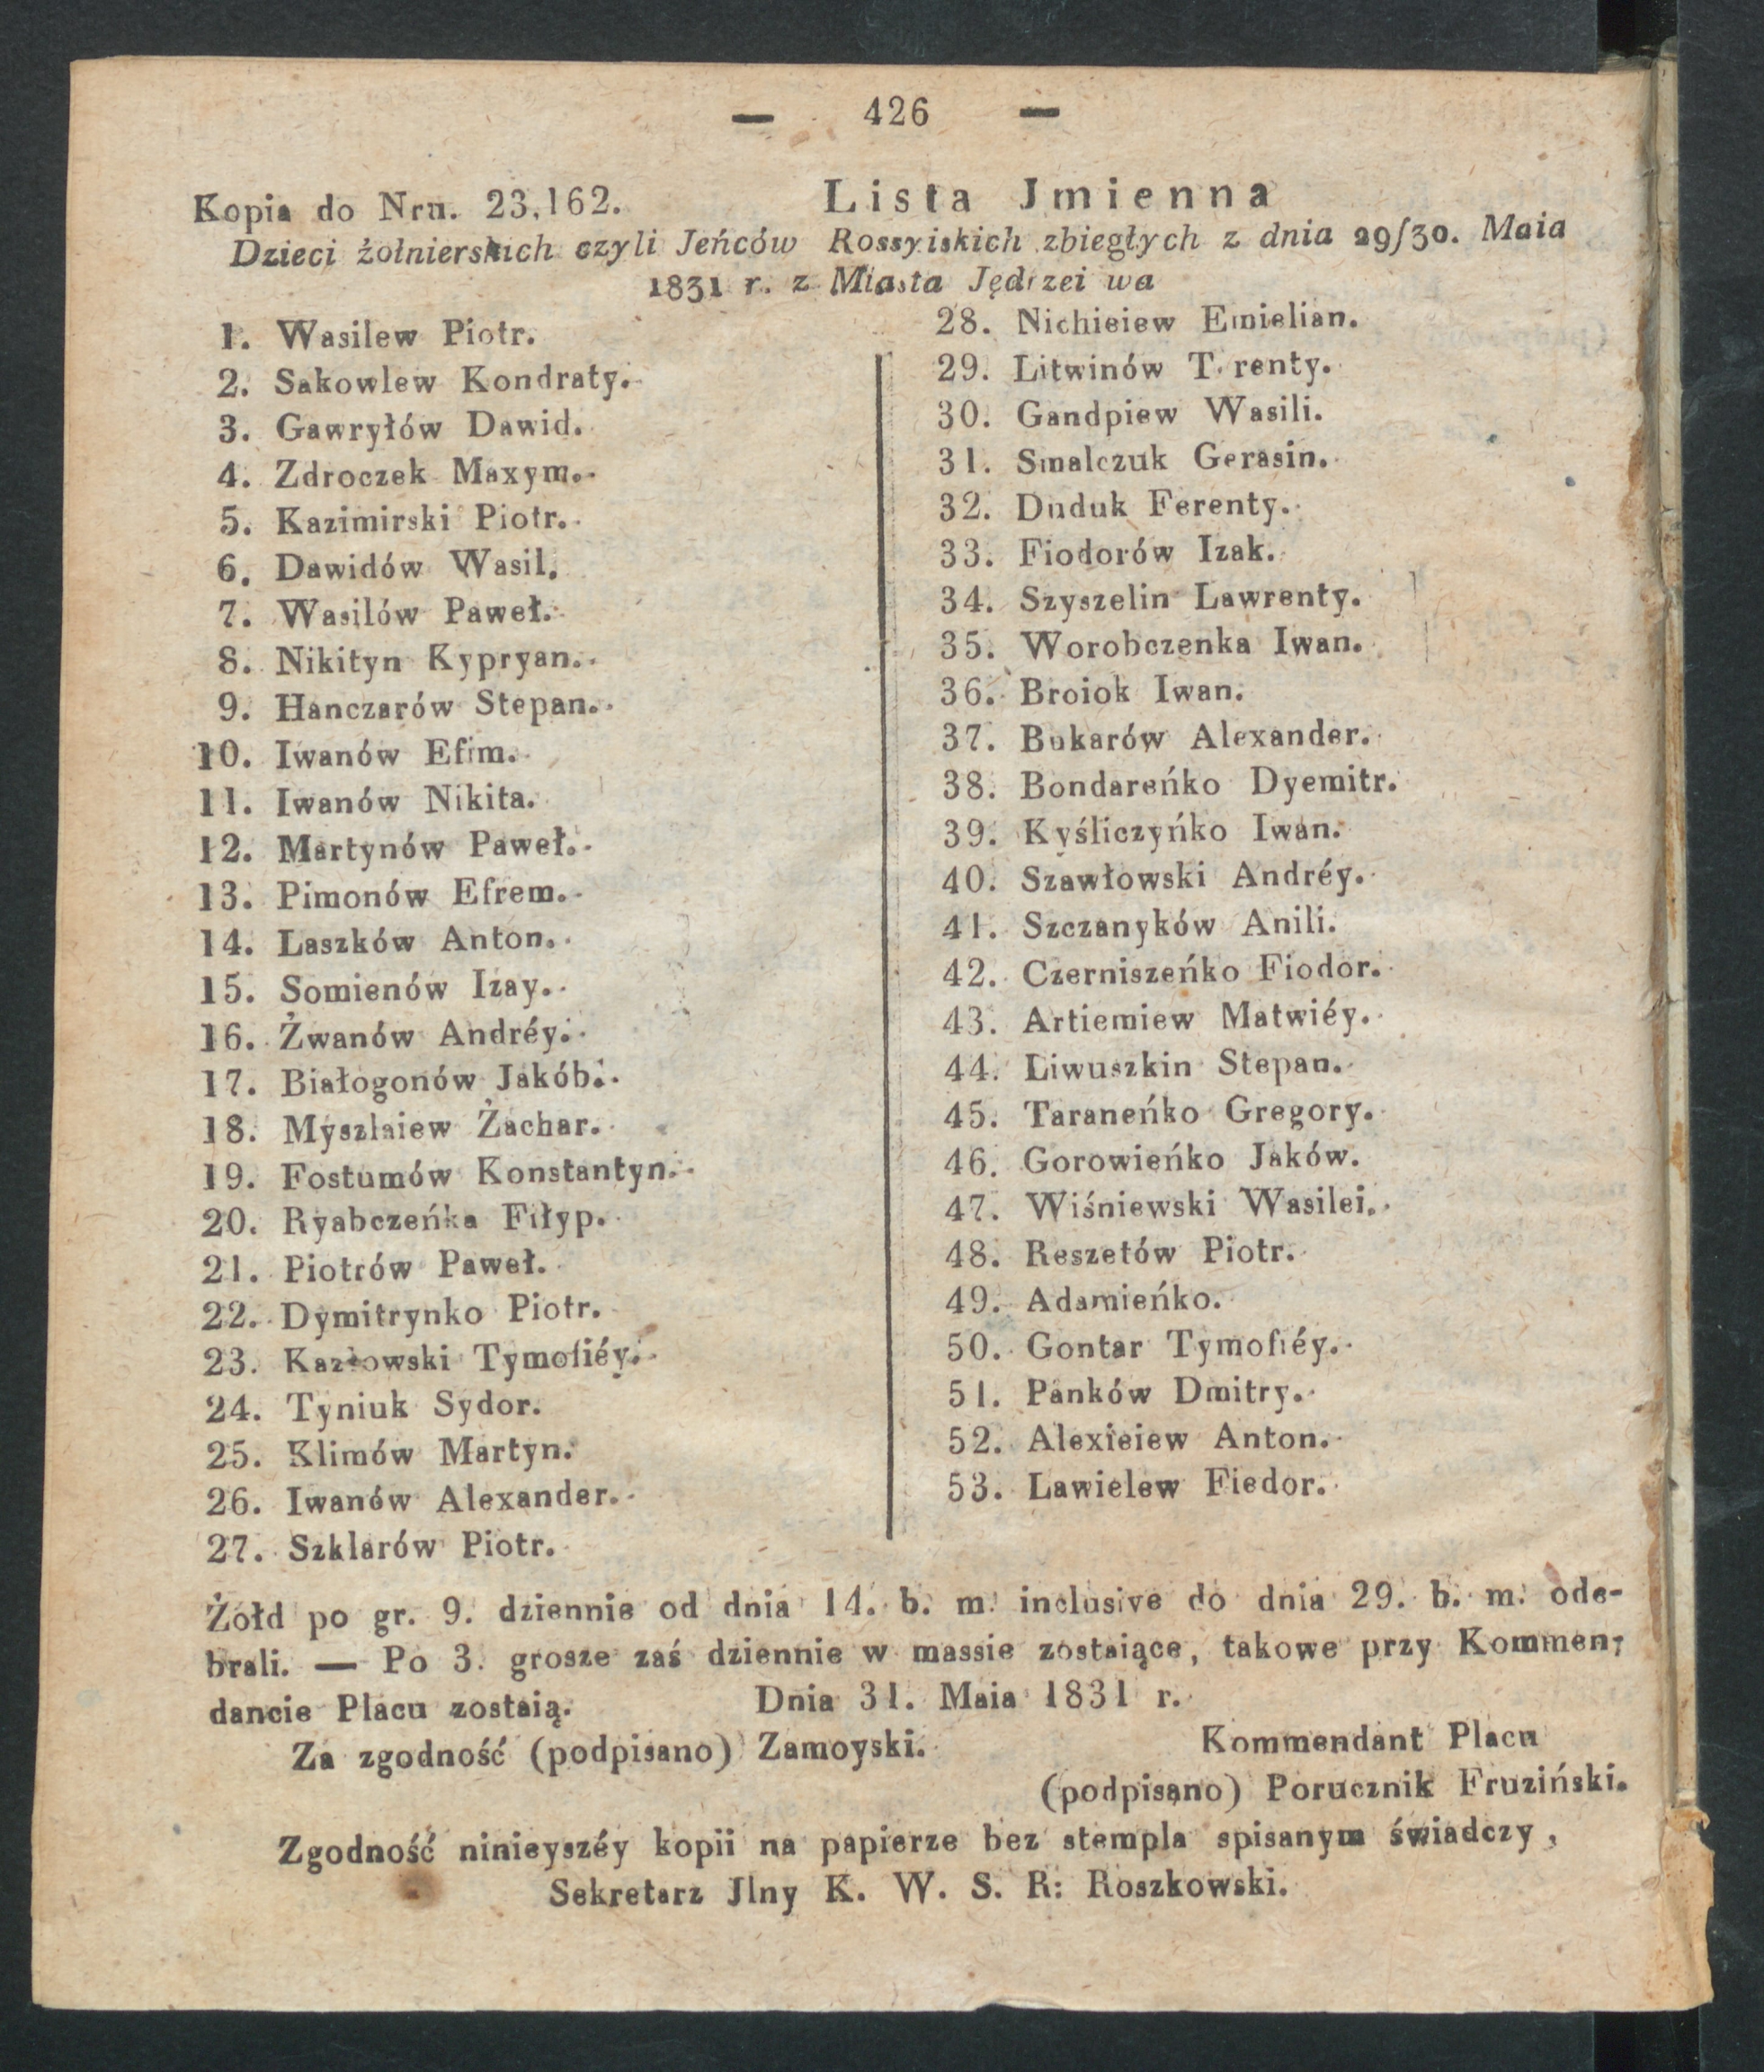 — 426 —
Kopia do Nru. 23,162. Lista Jmienna
Dzieci żołnierskich czyli Jeńców Rossyiskich zbiegłych z dnia 29/30. Maia
1831 r. z Miasta Jędrzei wa
1. Wasilew Piotr.
2. Sakowlew Kondraty.
3. Gawryłów Dawid.
4. Zdroczek Maxym.
5. Kazimirski Piotr.
6. Dawidów Wasil.
7. Wasilów Paweł.
8. Nikityn Kypryan.
9. Hanczarów Stepan.
10. Iwanów Efim.
11. Iwanów Nikita.
12. Martynów Paweł.
13. Pimonów Efrem.
14. Laszków Anton.
15. Somienów Izay.
16. Żwanów Andréy.
17. Białogonów Jakób.
18. Myszlaiew Żachar.
19. Fostumów Konstantyn.
20. Ryabczeńka Fiłyp.
21. Piotrów Paweł.
22. Dymitrynko Piotr.
23. Kazłowski Tymofiéy.
24. Tyniuk Sydor.
25. Klimów Martyn.
26. Iwanów Alexander.
27. Szklarów Piotr.
28. Nichieiew Emielian.
29. Litwinów T. renty.
30. Gandpiew Wasili.
31. Smalczuk Gerasin.
32. Duduk Ferenty.
33. Fiodorów Izak.
34. Szyszelin Lawrenty.
35. Worobczenka Iwan.
36. Broiok Iwan.
37. Bukarów Alexander.
38. Bondareńko Dyemitr.
39. Kyśliczyńko Iwan.
40. Szawłowski Andréy.
41. Szczanyków Anili.
42. Czerniszeńko Fiodor.
43. Artiemiew Matwiéy.
44. Liwuszkin Stepan.
45. Taraneńko Gregory.
46. Gorowieńko Jaków.
47. Wiśniewski Wasilei.
48. Reszetów Piotr.
49. Adamieńko.
50. Gontar Tymofiéy.
51. Panków Dmitry.
52. Alexieiew Anton.
53. Lawielew Fiedor.
Żołd po gr. 9. dziennie od dnia 14. b. m. inclusive do dnia 29. b. m. ode-
brali. — Po 3. grosze zaś dziennie w massie zostaiące, takowe przy Kommen-
dancie Placu zostaią. Dnia 31. Maia 1831 r.
Za zgodność (podpisano) Zamoyski. Kommendant Placu
(podpisano) Porucznik Fruziński.
Zgodność ninieyszéy kopii na papierze bez stempla spisanym świadczy,
Sekretarz Jlny K. W. S. R: Roszkowski.